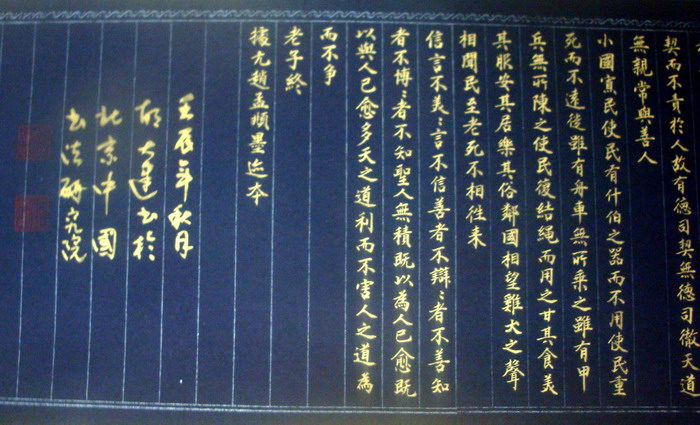 契而不責於人故有德司契無德司徹天道
無親常與善人
小國寡民使民有什伯之器而不用使民重
死而不遠徙雖有舟車無所乘之雖有甲
兵無所陳之使民復結繩而用之甘其食美
其服安其居樂其俗鄰國相望雞犬之聲
相聞民至老死不相往来
信言不美〻言不信善者不辯〻者不善知
者不博〻者不知聖人無積既以為人已愈既
以與人已愈多天之道利而不害人之道為
而不爭
老子終
趙孟順墨迹本
壬辰年秋月
胡大建书於
北京中國
书法研究院